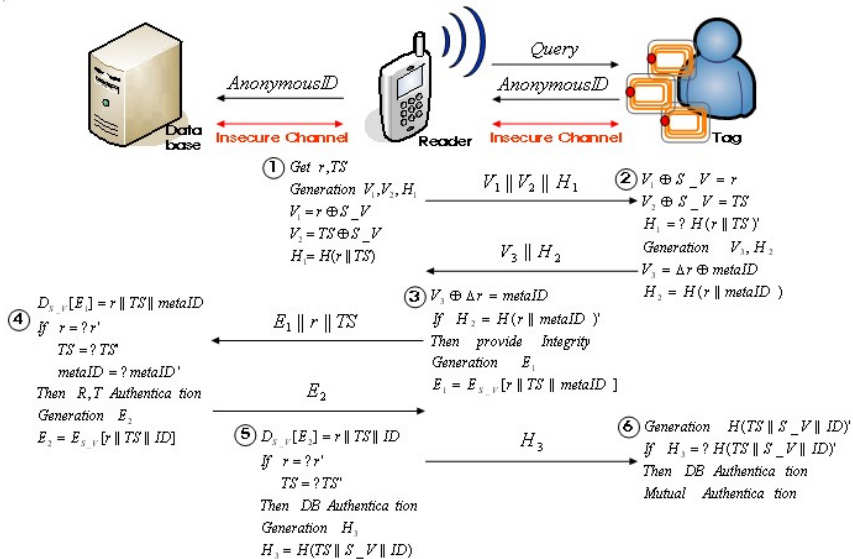 Query
AnonymousID
AnonymousID
Data base
Insecure Channel
Reader
Insecure Channel
Tag
① Get r,TS
Generation V₁,V₂,H₁
V₁ = r ⊕ S_V
V₂ = TS ⊕ S_V
H₁ = H(r || TS)
V₁ || V₂ || H₁
② V₁ ⊕ S_V = r
V₂ ⊕ S_V = TS
H₁ = ? H(r || TS)'
Generation V₃, H₂
V₃ = Δr ⊕ metaID
H₂ = H(r || metaID )
V₃ || H₂
③ V₃ ⊕ Δr = metaID
If H₂ = H(r || metaID )'
Then provide Integrity
Generation E₁
E₁ = E_{S_V}[r || TS || metaID ]
E₁ || r || TS
④ D_{S_V}[E₁] = r || TS || metaID
If r = ? r'
TS = ? TS'
metaID = ? metaID'
Then R,T Authentica tion
Generation E₂
E₂ = E_{S_V}[r || TS || ID]
E₂
⑤ D_{S_V}[E₂] = r || TS || ID
If r = ? r'
TS = ? TS'
Then DB Authentica tion
Generation H₃
H₃ = H(TS || S_V || ID)
H₃
⑥ Generation H(TS || S_V || ID)'
If H₃ = ? H(TS || S_V || ID)'
Then DB Authentica tion
Mutual Authentica tion